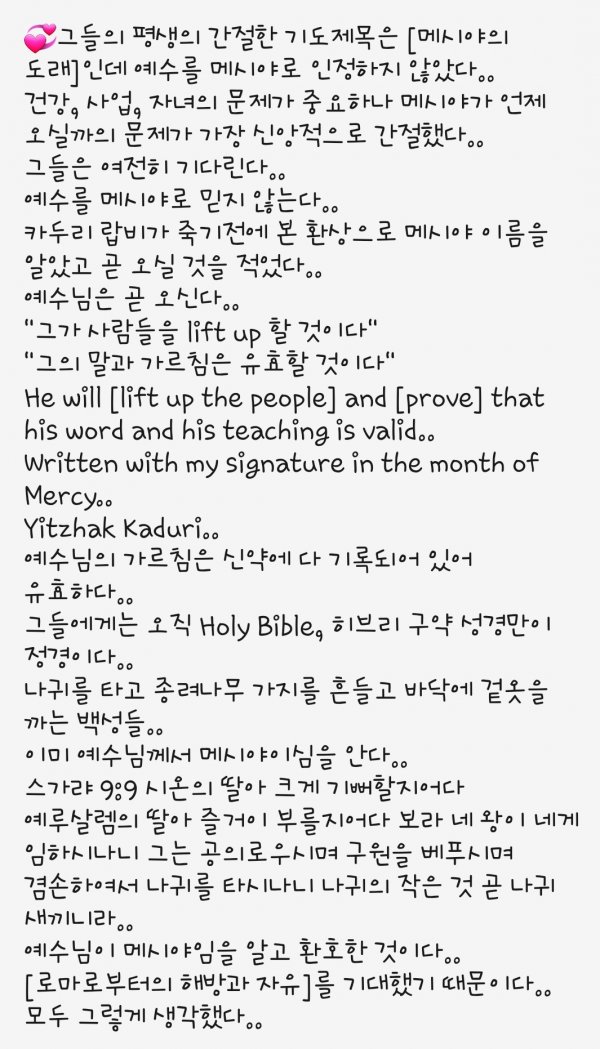 💞그들의 평생의 간절한 기도제목은 [메시야의
도래]인데 예수를 메시야로 인정하지 않았다。。
건강, 사업, 자녀의 문제가 중요하나 메시야가 언제
오실까의 문제가 가장 신앙적으로 간절했다。。
그들은 여전히 기다린다。。
예수를 메시야로 믿지 않는다。。
카두리 랍비가 죽기전에 본 환상으로 메시야 이름을
알았고 곧 오실 것을 적었다。。
예수님은 곧 오신다。。
"그가 사람들을 lift up 할 것이다"
"그의 말과 가르침은 유효할 것이다"
He will [lift up the people] and [prove] that
his word and his teaching is valid。。
Written with my signature in the month of
Mercy。。
Yitzhak Kaduri。。
예수님의 가르침은 신약에 다 기록되어 있어
유효하다。。
그들에게는 오직 Holy Bible, 히브리 구약 성경만이
정경이다。。
나귀를 타고 종려나무 가지를 흔들고 바닥에 겉옷을
까는 백성들。。
이미 예수님께서 메시야이심을 안다。。
스가랴 9:9 시온의 딸아 크게 기뻐할지어다
예루살렘의 딸아 즐거이 부를지어다 보라 네 왕이 네게
임하시나니 그는 공의로우시며 구원을 베푸시며
겸손하여서 나귀를 타시나니 나귀의 작은 것 곧 나귀
새끼니라。。
예수님이 메시야임을 알고 환호한 것이다。。
[로마로부터의 해방과 자유]를 기대했기 때문이다。。
모두 그렇게 생각했다。。